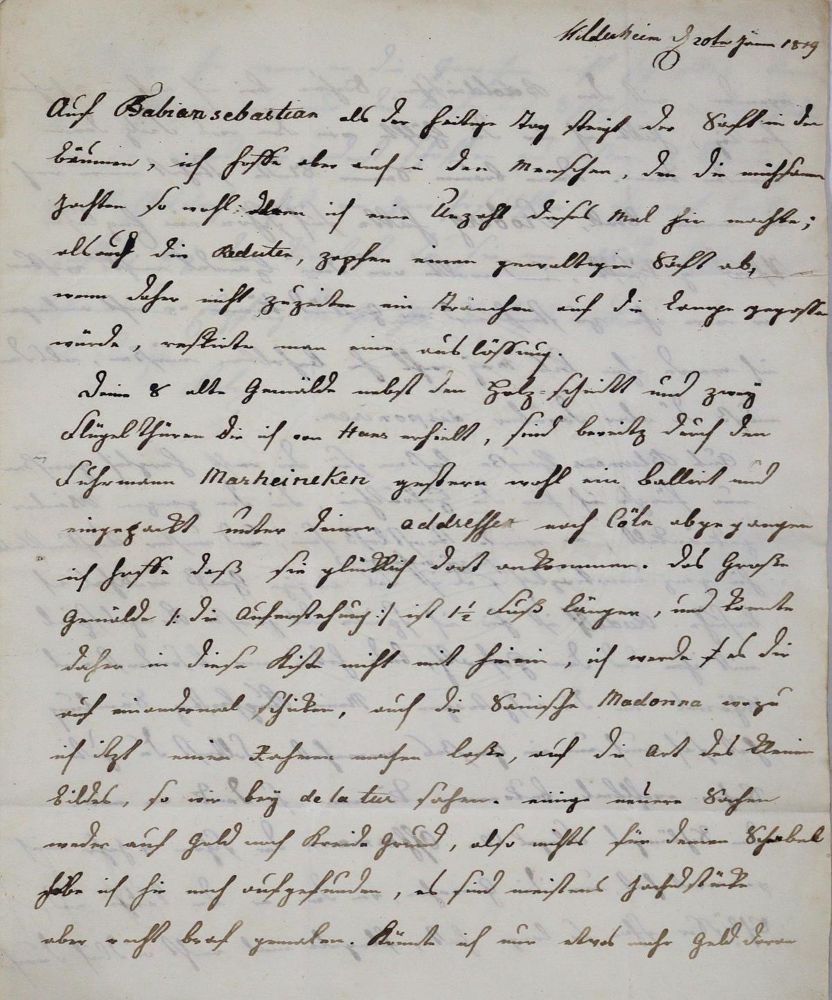 Hildesheim d 20ten Jänn 1819
Auf Fabian sebastian als der heilige Tag steigt der Saft in den
bäumen, ich hoffe aber auch in den Menschen, den die mühsame
Jachten so wohl: deren ich eine Anzahl dieses Mal hier machte;
als auch die Reduten, zapfen einen gewaltigen Saft ab,
wenn daher nicht zuzeiten ein Tränchen auf die Lampe gegossen
würde, reskirte man eine auslössung.
Deine 8 alte Gemälde nebst den Holz-schnitt und zwey
Flügelthüren die ich von Hans erhielt, sind bereitz durch den
Fuhrmann Marheineken gestern wohl ein ballirt und
eingepackt unter deiner addresse nach Cöln abgegangen
ich hoffe daß sie glücklich dort ankommen. das Große
Gemälde /: die Auferstehung :/ ist 1½ Fuß länger, und konnte
daher in diese Kiste nicht mit hinein, ich werde es dir
auf ein andermal schicken, auch die Madonna wozu
ich itzt einen Rahmen machen laße, auf die Art des kleinen
bildes, so wir bey de la tur sahen. einige neuere Sachen
weder auf Gold noch Kreide Grund, also nichts für deinen Schnabel
habe ich hier noch aufgefunden, es sind meistens Jachdstücke
aber recht braf gemalen. Könnte ich nur etwas mehr Geld daran